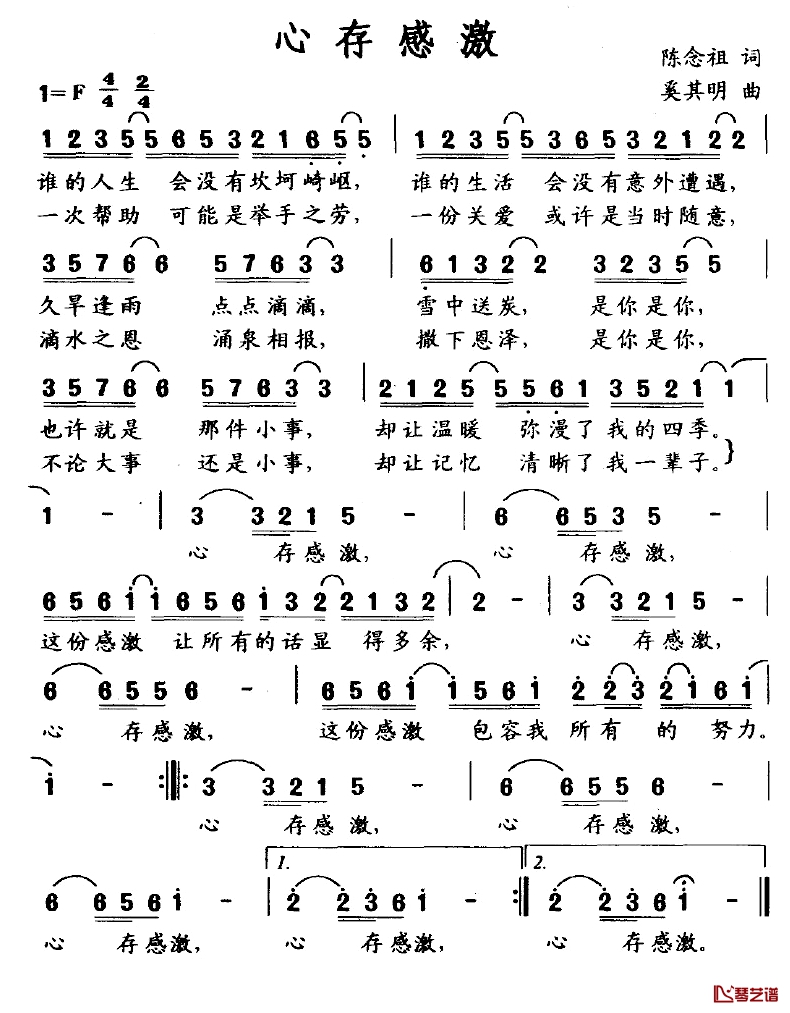 心存感激
陈念祖 词
1=F 4/4 2/4
奚其明 曲
1 2 3 5 5 6 5 3 2 1 6 5 5 | 1 2 3 5 5 3 6 5 3 2 1 2 2 |
谁的人生 会没有坎坷崎岖, 谁的生活 会没有意外遭遇,
一次帮助 可能是举手之劳, 一份关爱 或许是当时随意,
3 5 7 6 6 5 7 6 3 3 | 6 1 3 2 2 3 2 3 5 5 |
久旱逢雨 点点滴滴, 雪中送炭, 是你是你,
滴水之恩 涌泉相报, 撒下恩泽, 是你是你,
3 5 7 6 6 5 7 6 3 3 | 2 1 2 5 5 5 6 1 3 5 2 1 1 |
也许就是 那件小事, 却让温暖 弥漫了我的四季。
不论大事 还是小事, 却让记忆 清晰了我一辈子。}
1 - | 3 3 2 1 5 - | 6 6 5 3 5 - |
心 存感激, 心 存感激,
6 5 6 i i 6 5 6 i 3 2 2 1 3 2 | 2 - | 3 3 2 1 5 - |
这份感激 让所有的话显 得多余, 心 存感激,
6 6 5 5 6 - | 6 5 6 i 1 5 6 1 2 2 3 2 1 6 i |
心 存感激, 这份感激 包容我 所有 的 努力。
i - :‖: 3 3 2 1 5 - | 6 6 5 5 6 - |
心 存感激, 心 存感激,
1. 2.
6 6 5 6 i - | 2 2 3 6 i - :‖ 2 2 3 6 i - ‖
心 存感激, 心 存感激, 心 存感激。
琴艺谱